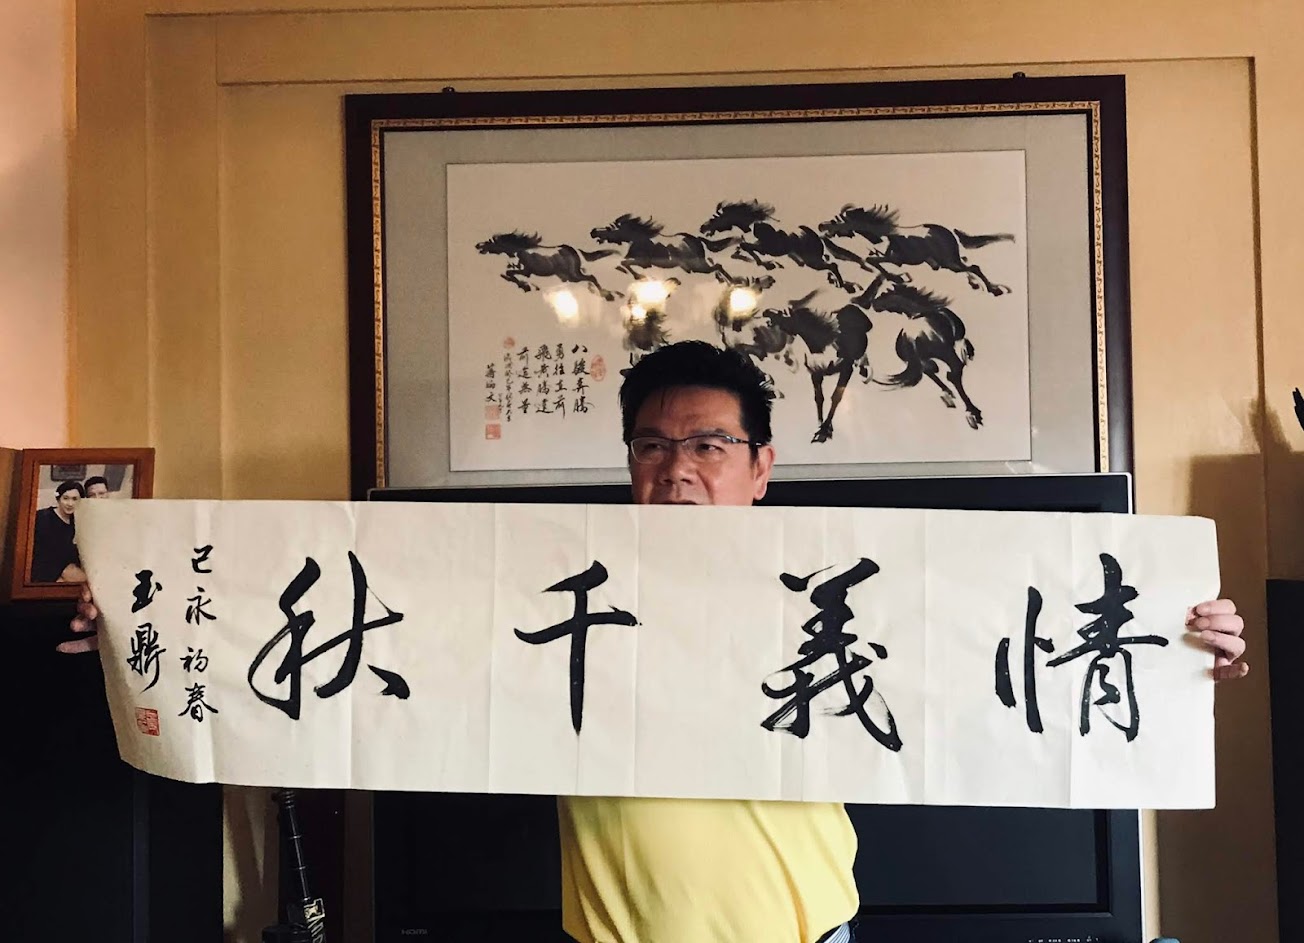 八駿奔騰
勇往直前
飛黃騰達
前途無量
情義千秋
己亥初春
玉鼎
HDMI